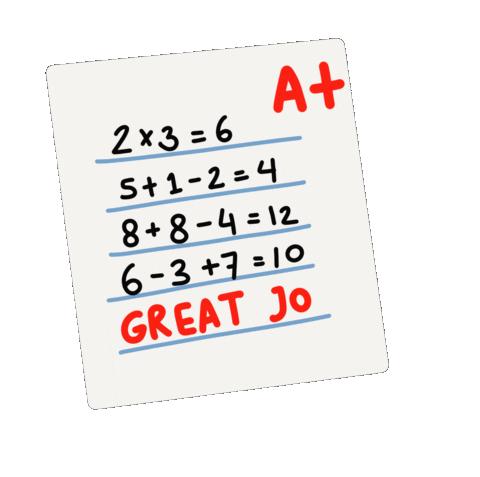 A+
2×3=6
5+1-2=4
8+8-4=12
6-3+7=10
GREAT JO